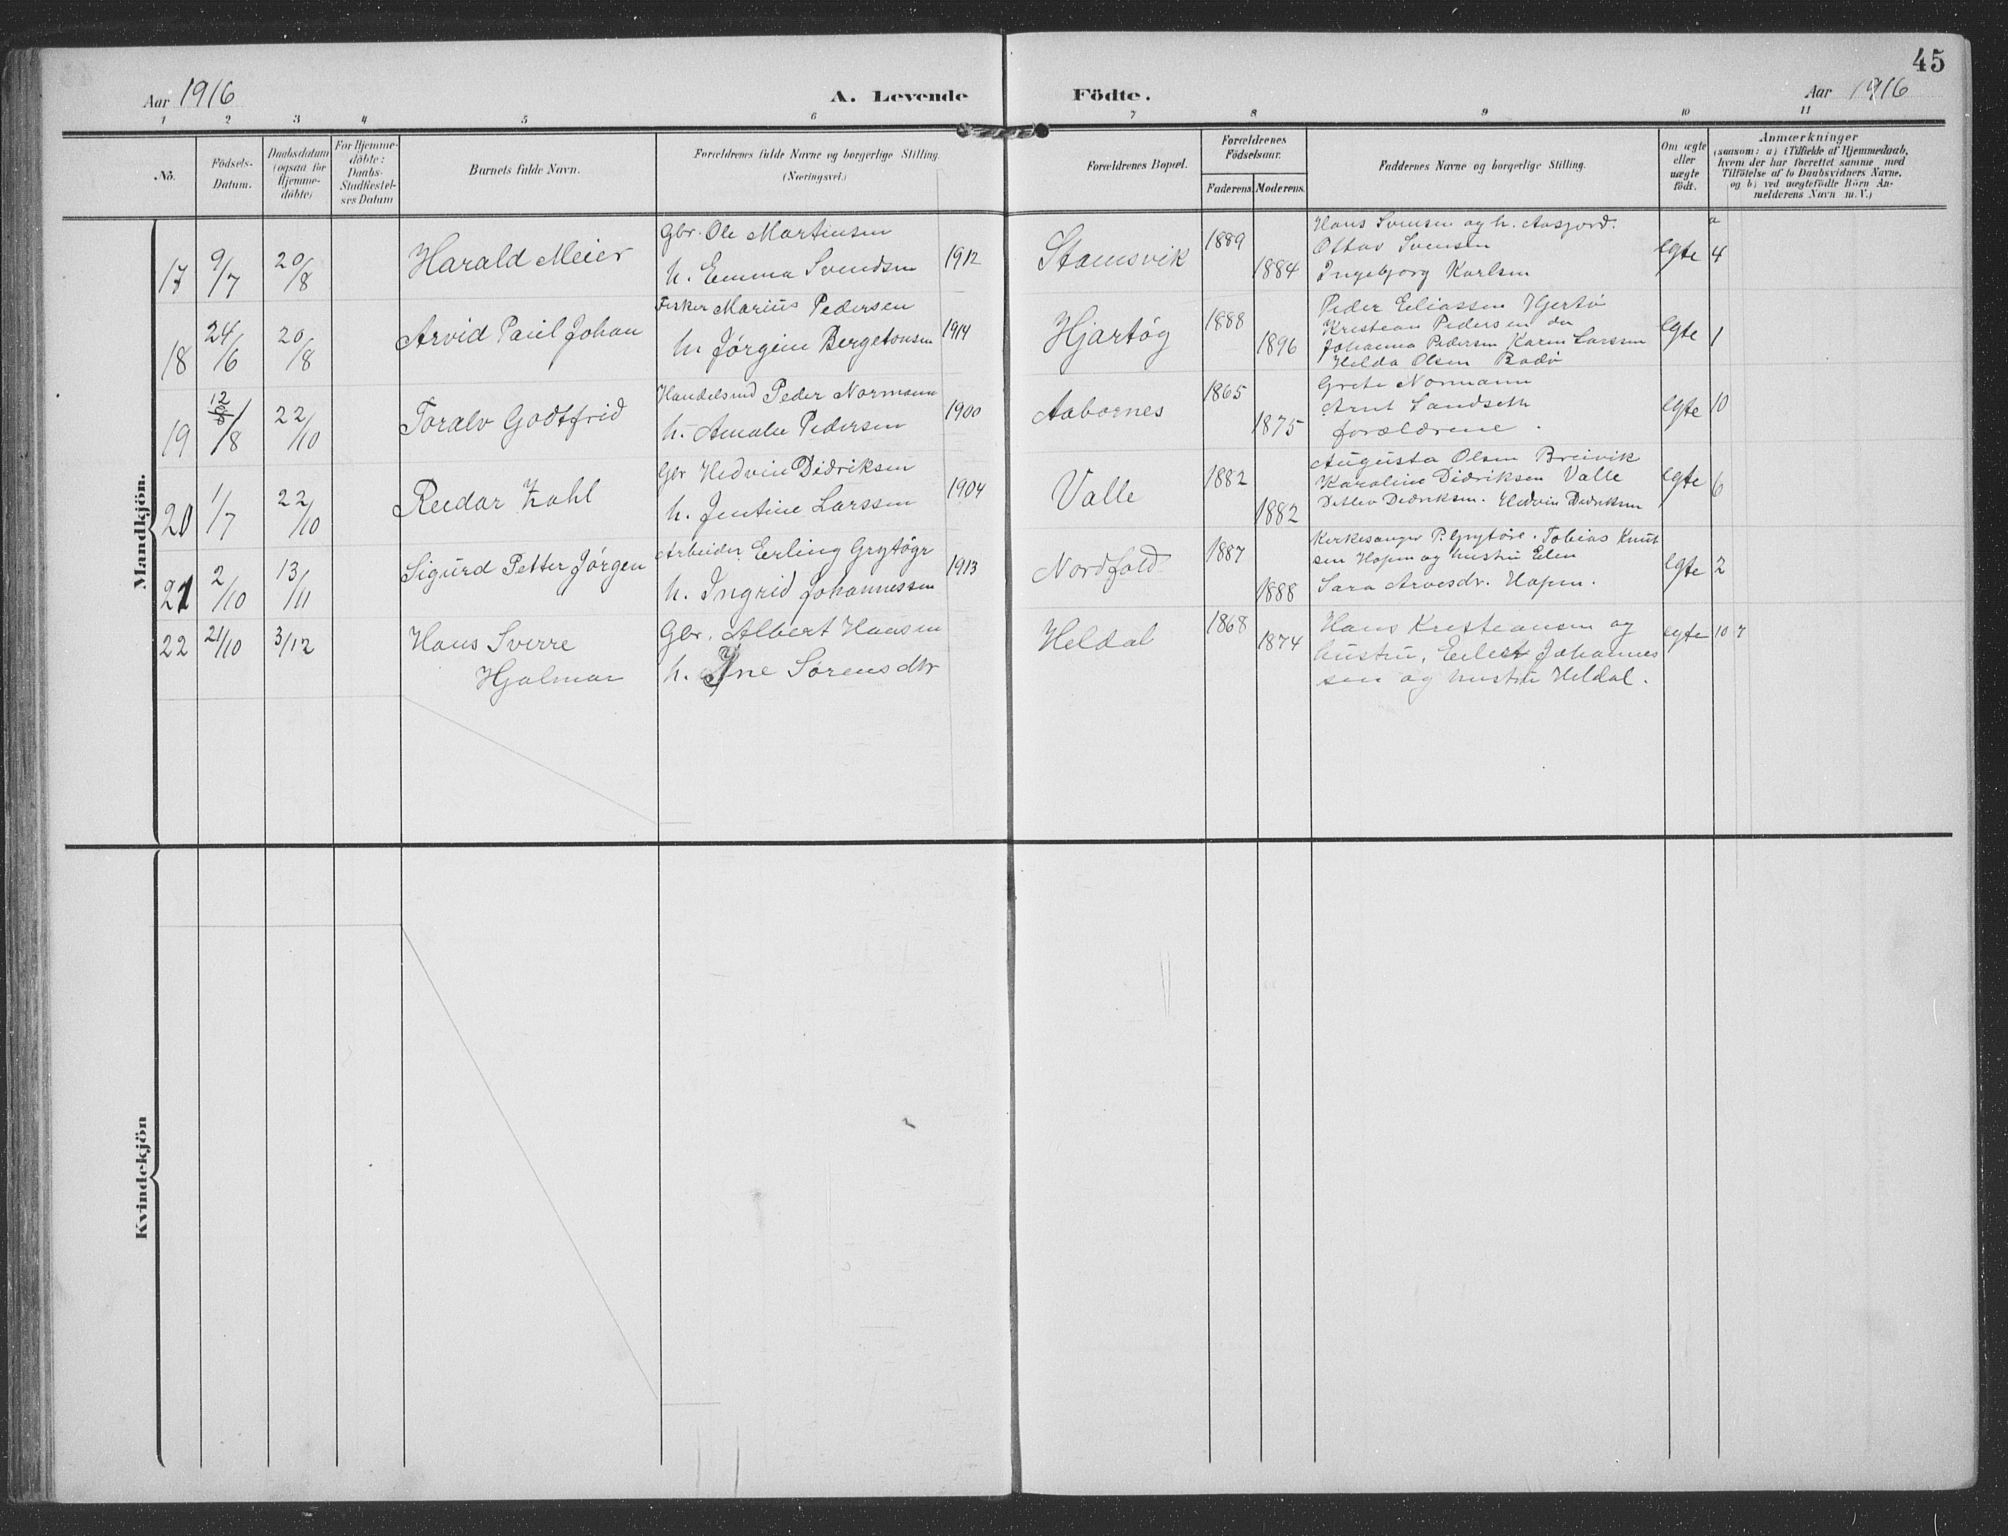 45
Aar 1916
A. Levende
Födte.
Aar 1916
1 2 3 4 5 6 7 8 9 10 11
No.
Födsels-
Datum.
Daabsdatum
(ogsaa for
Hjemme-
döbte)
For Hjemme-
döbte:
Daabs-
Stadfæstel-
ses Datum
Barnets fulde Navn.
Forældrenes fulde Navne og borgerlige Stilling.
(Næringsvei.)
Forældrenes Bopæl.
Forældrenes
Födselsaar.
Faderens.
Moderens.
Faddernes Navne og borgerlige Stilling.
Om ægte
eller
uægte
födt.
Anmærkninger
(saasom: a) i Tilfælde af Hjemmedaab,
hvem der har forrettet samme, med
Tilföielse af to Daabsvidners Navne,
og b) ved uægtefödte Börn An-
melderens Navn m. V.)
Mandkjön.
17
9/7
20/8
Harald Meier
Gbr. Ole Martinsen
h. Emma Svendsen
1912
Stamsvik
1889
1884
Hans Svensen og h. Aasjord.
Ottar Svensen
Ingebjorg Karlsen
egte
a
4
18
24/6
20/8
Arvid Paul Johan
Fisker Marius Pedersen
h. Jørgine Bergetonsen
1914
Hjartøg
1888
1896
Peder Eeliassen Hjertö
Kristian Pedersen do
Johanna Pedersen Karen Larssen
Helda Olsen Bodö
egte
1
19
12/8
/8
22/10
Toralv Godtfrid
Handelsmd Peder Normann
h. Amalie Pedersen
1900
Aabornes
1865
1875
Grete Normann
Arnt Sandseth
forældrene.
egte
10
20
1/7
22/10
Reidar Zahl
Gbr Hedvin Didriksen
h. Jentine Larssen
1904
Valle
1882
1882
Augusta Olsen Breivik
Karoline Didriksen Valle
Detlev Didriksen. Hedvin Didriksen
egte
6
21
2/10
13/11
Sigurd Petter Jørgen
Arbeider Erling Grytögr
h. Ingrid Johannessen
1913
Nordfold
1887
1888
Kirkesanger P. Grytöre. Tobias Knut
sen Hopen og hustru Elen
Sara Arvesdr. Hopen.
egte
2
22
21/10
3/12
Hans Sverre
Hjalmar
Gbr. Albert Hansen
h. Ine Sørensdtr
Heldal
1868
1874
Hans Kristiansen og
hustru, Eilert Johannes
sen og hustru Heldal.
egte
10
7
Kvindekjön